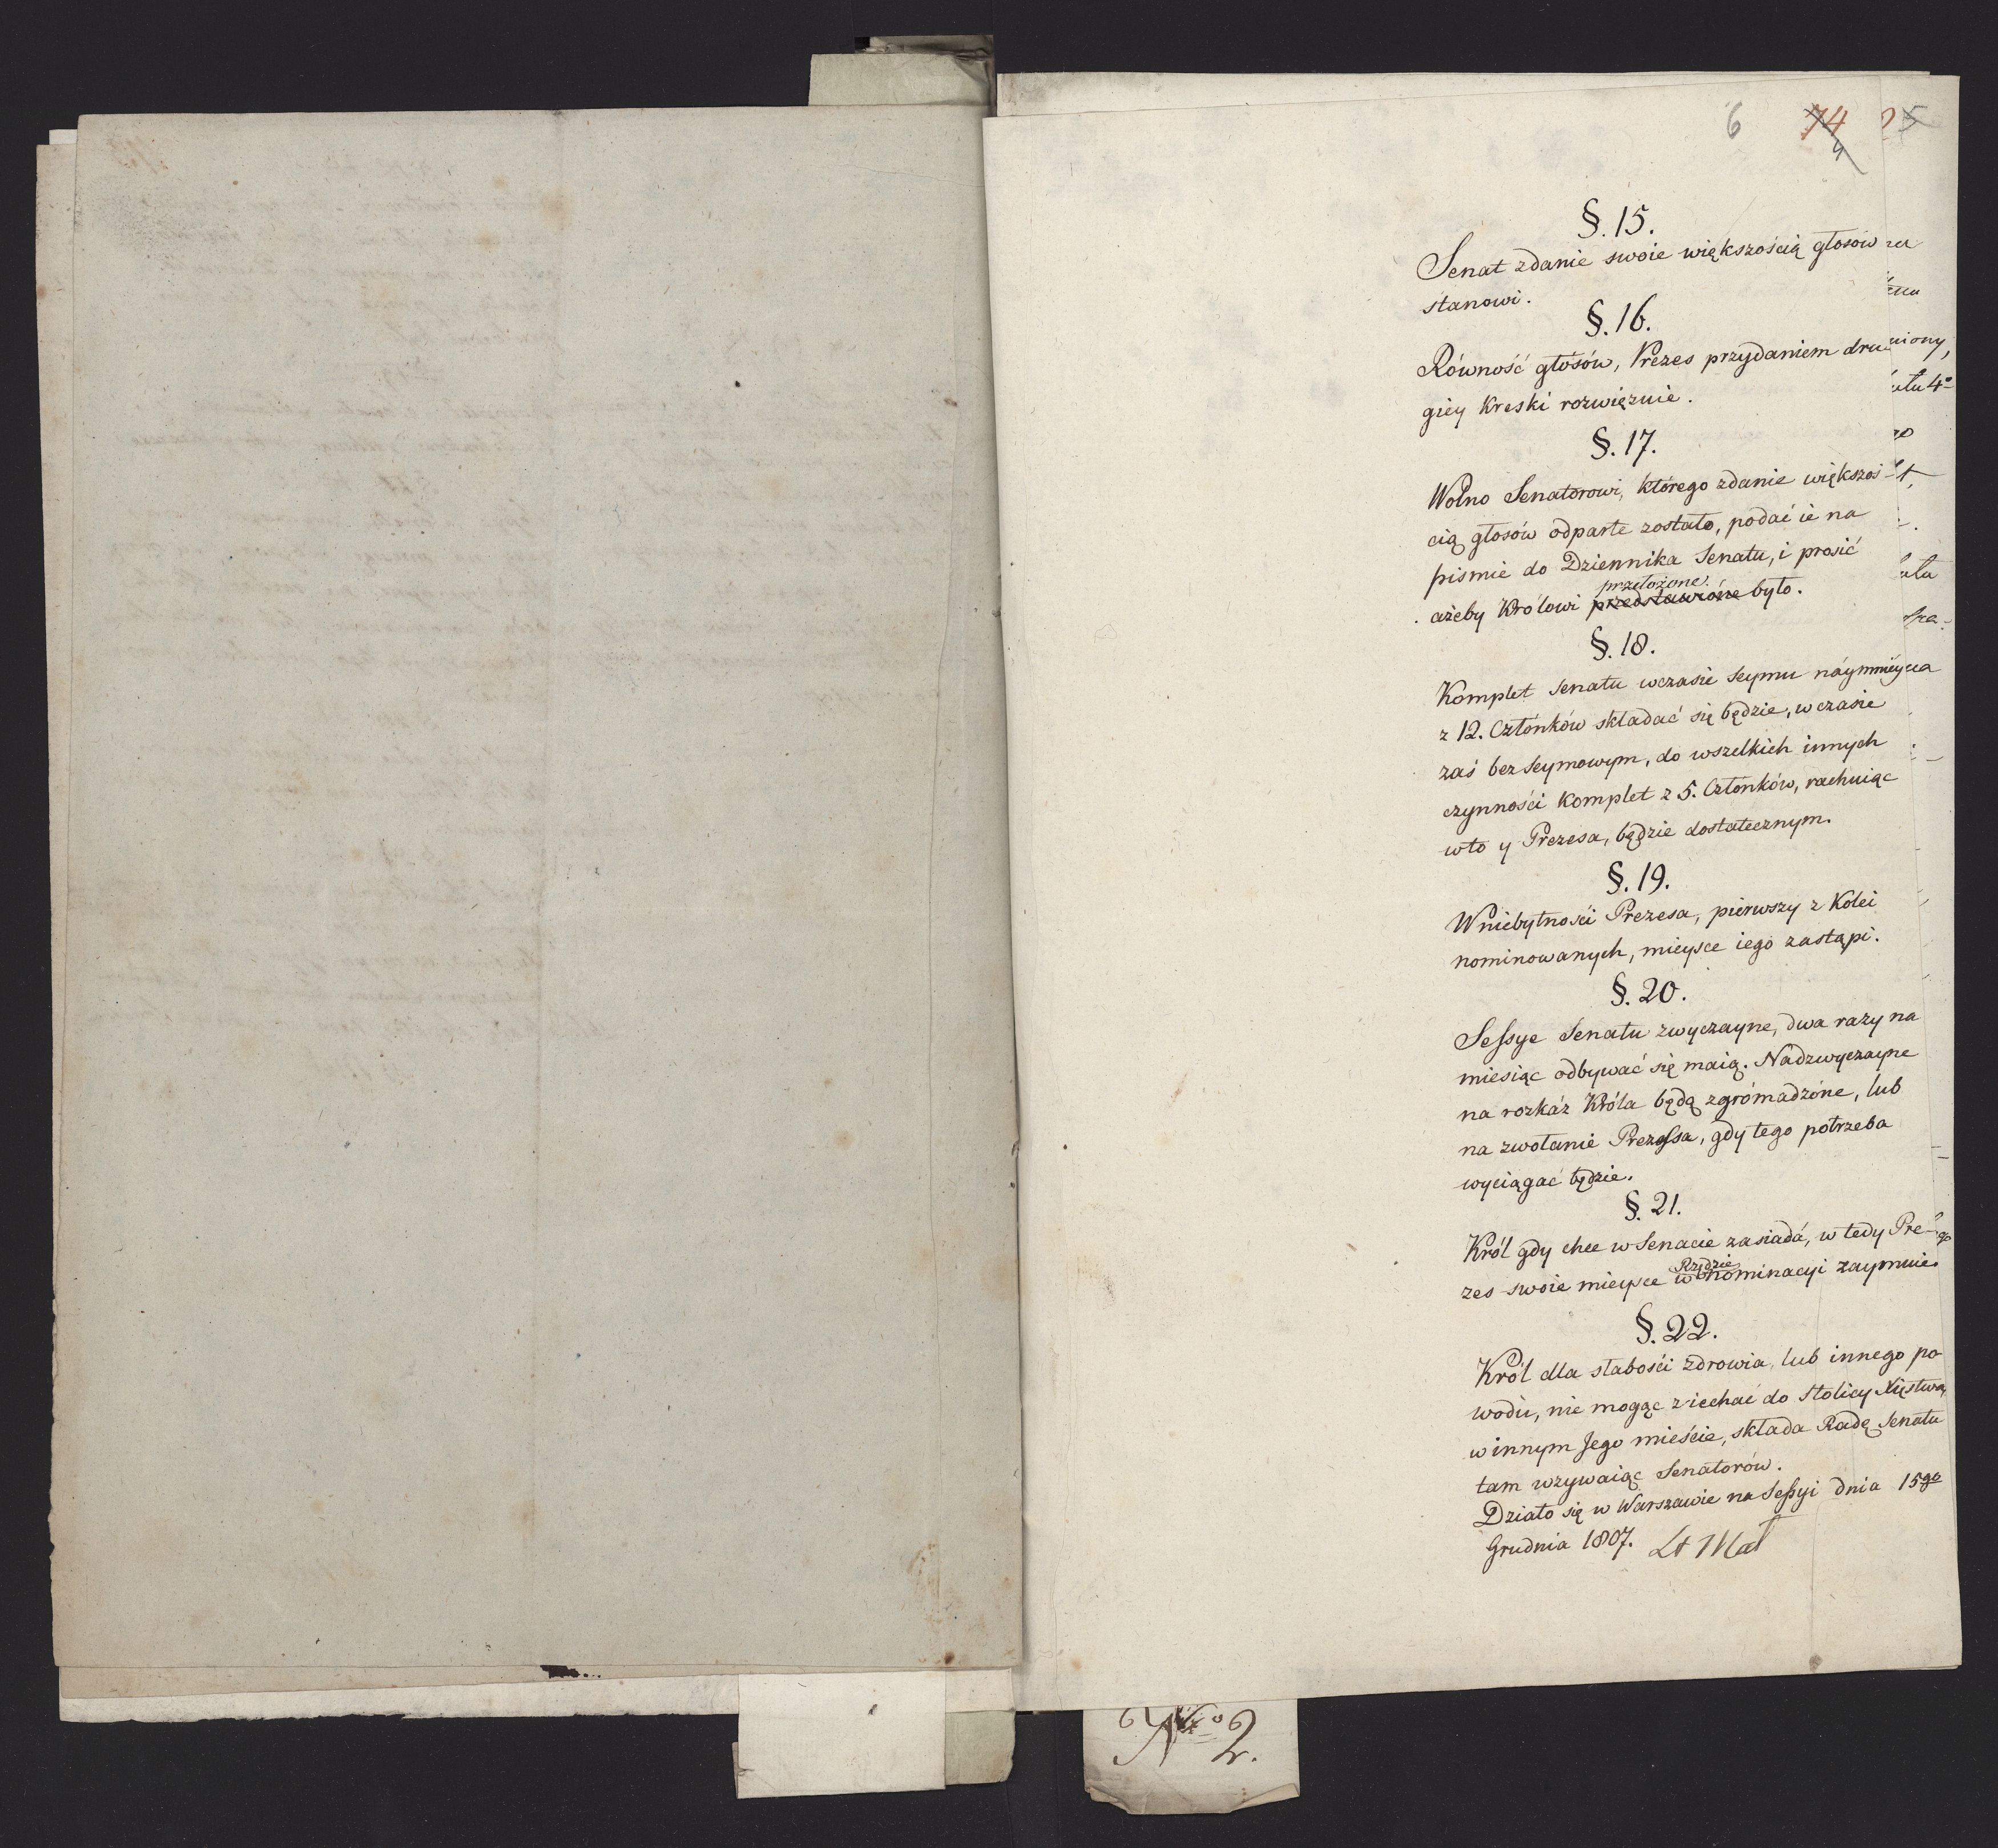 6 74 25
4
§. 15.
Senat zdanie swoie większością głosów
stanowi.
§. 16.
Równość głosów, Prezes przydaniem dru-
giey Kreski rozwięzuie.
§. 17.
Wolno Senatorowi, którego zdanie większoś-
cią głosów odparte zostało, podać ie na
pismie do Dziennika Senatu, i prosić
przełożone
ażeby Królowi przedstawióne było.
§. 18.
Komplet Senatu wczasie Seymu náymniéy
z 12. Członków składać się będzie, w czasie
zaś bezseymowym, do wszelkich innych
czynności Komplet z 5. Członków, rachuiąc
wto y Prezesa, będzie dostatecznym.
§. 19.
W niebytności Prezesa, pierwszy z Kolei
nominowanych, mieysce iego zastąpi.
§. 20.
Sessye Senatu zwyczayne, dwa razy na
miesiąc odbywać się maią. Nadzwyczayne
na rozkáz Króla będą zgrómadzóne, lub
na zwołanie Prezessa, gdy tego potrzeba
wyciągać będzie.
§. 21.
Król gdy chce w Senacie zasiadá, w tedy Pre-
Rzędzie
zes swoie mieysce w nominacyi zaymuie.
§. 22.
Król dla słabości zdrowia, lub innego po-
wodu, nie mogąc ziechać do Stolicy Xięstwa,
w innym Jego mieście, składa Radę Senatu
tam wzywaiąc Senatorów.
Działo się w Warszawie na Sessyi dnia 15go
Grudnia 1807.
uiony,
4o
No 2.